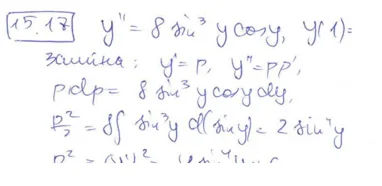 15.17 y'' = 8 sin³ y cos y, y(1)=
заміна: y' = p, y'' = pp',
pdp = 8 sin³ y cos y dy,
p²/2 = 8∫ sin³ y d(sin y) = 2 sin⁴ y